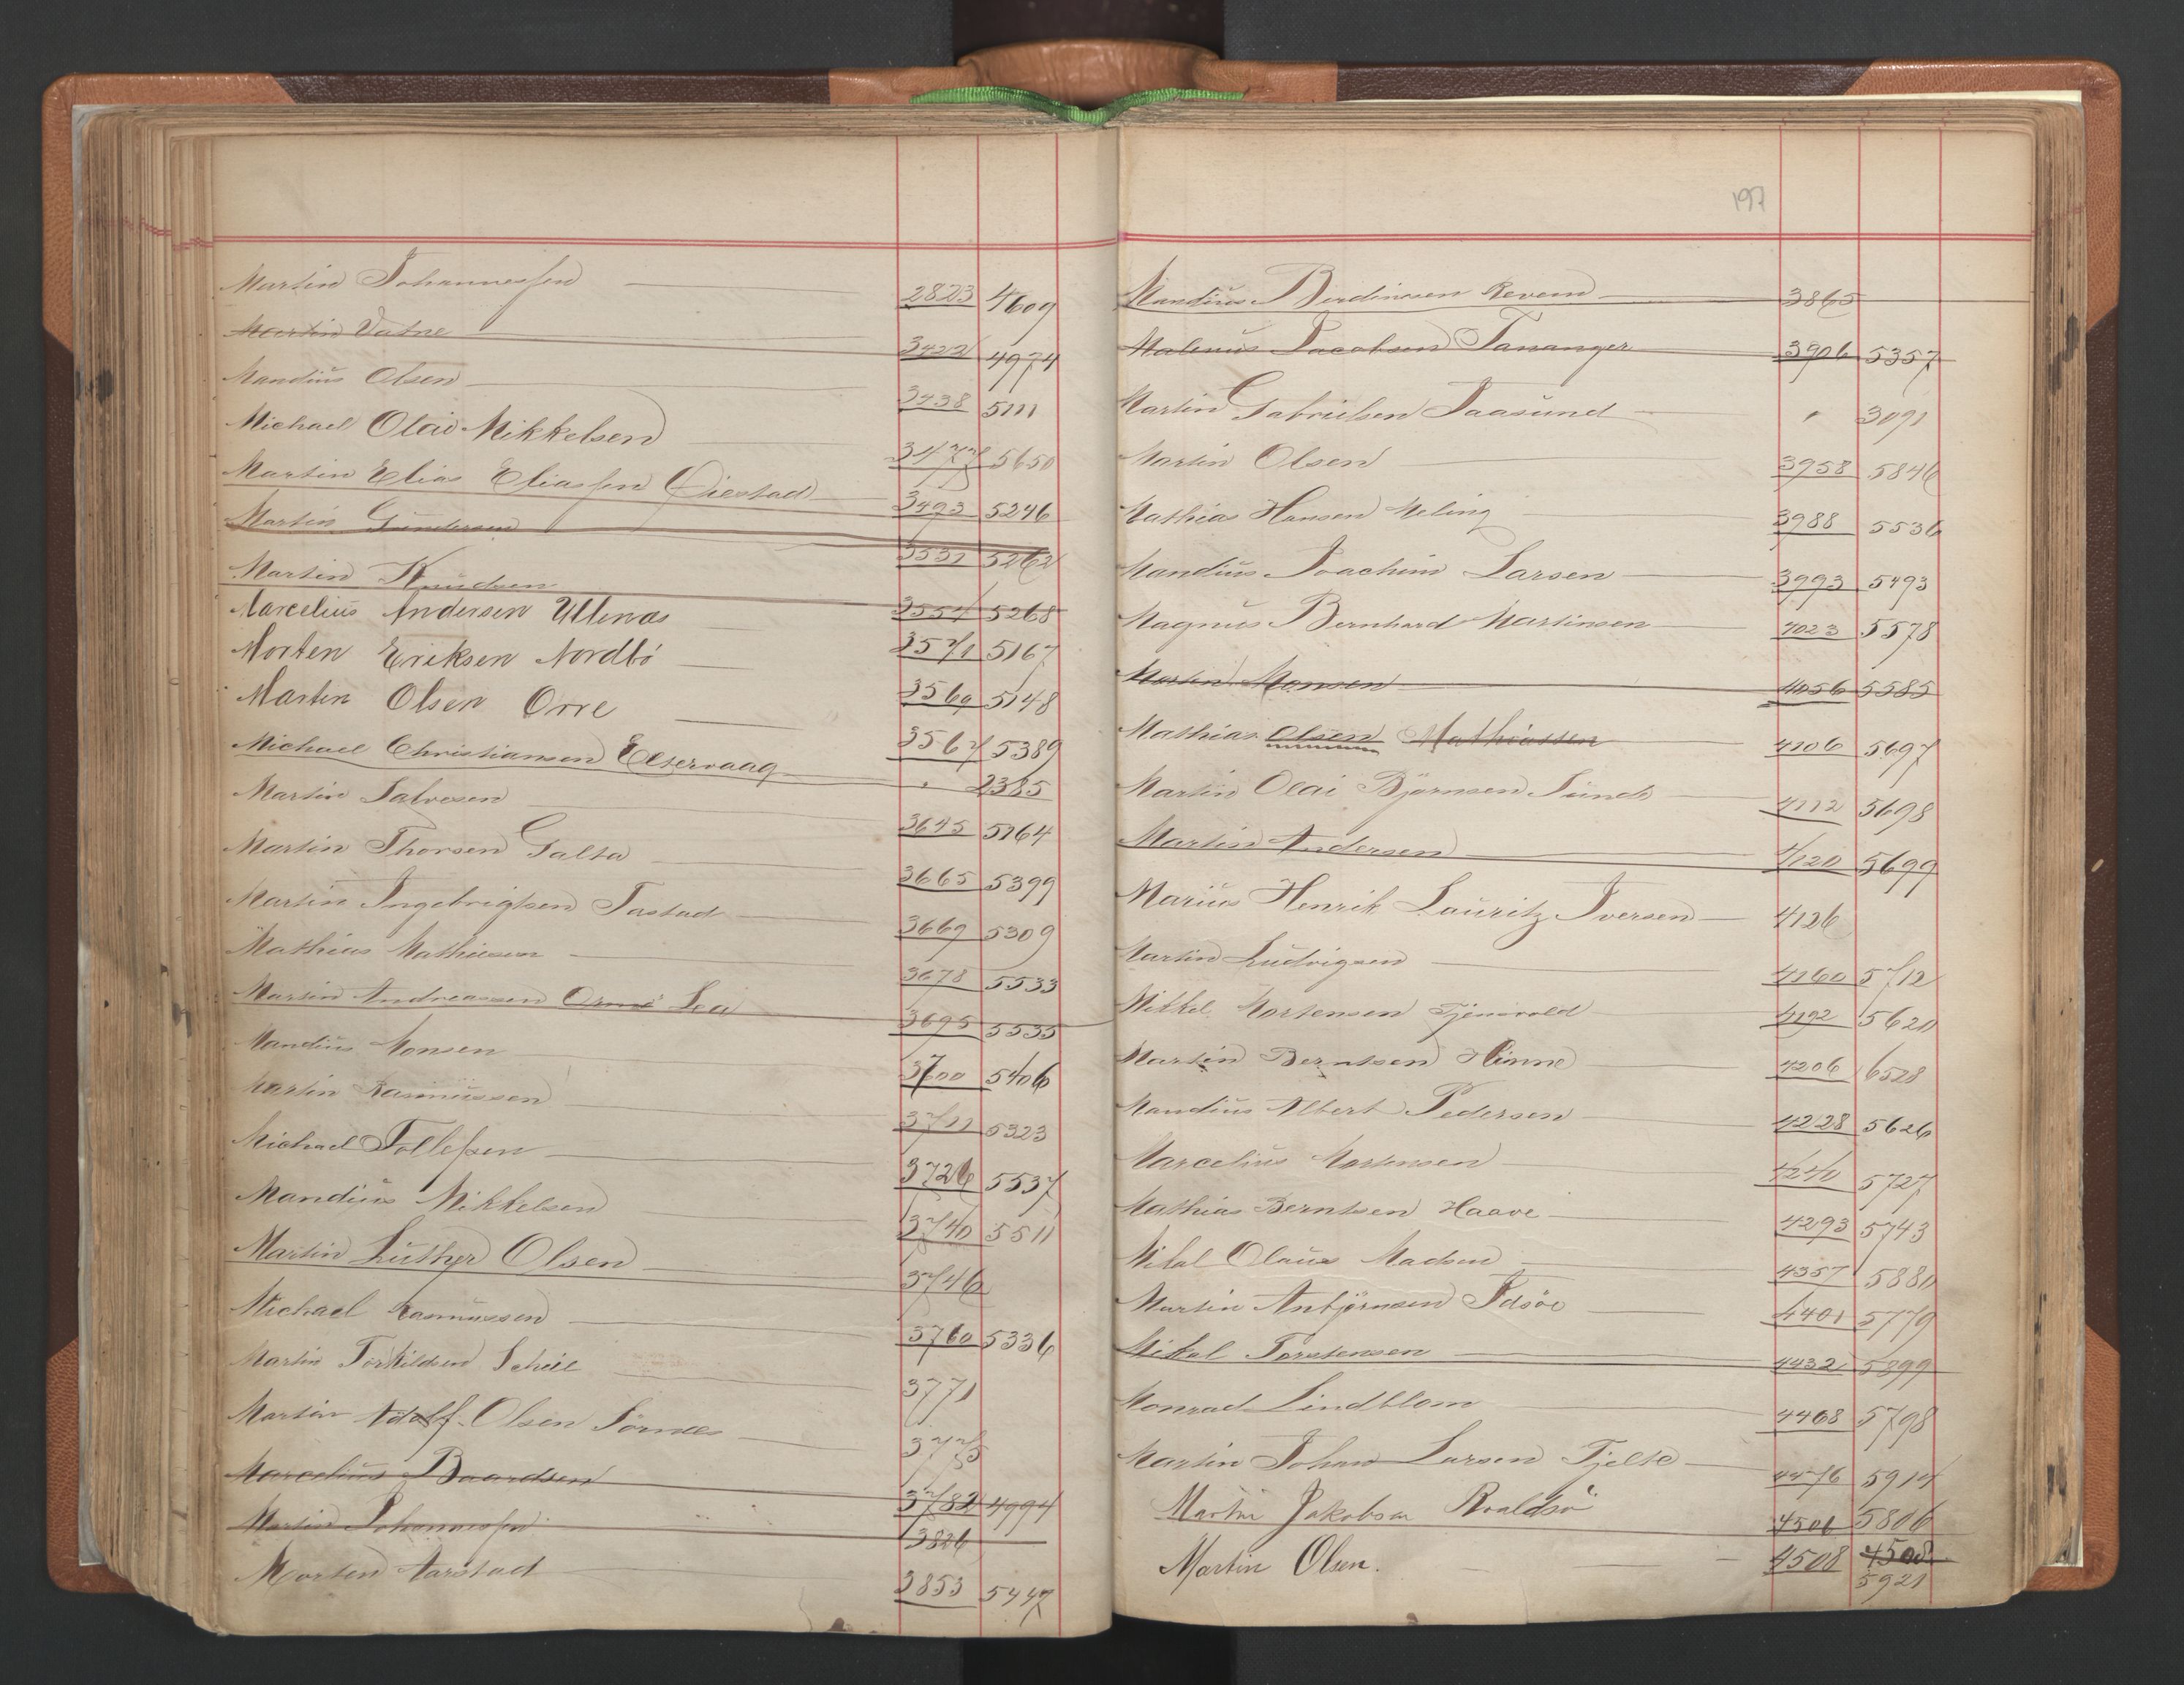 Martin Johannessen 2823 4609
Martin Vatne 3422 4974
Mandius Olsen 3438 5111
Michael Olai Mikkelsen 3477 5650
Martin Elias Eliassen Qiestad 3493 5246
Martin Gundersen 3531 5262
Martin Knudsen 3554 5268
Marcelius Andersen Utlenas 3571 5167
Morten Eriksen Nordbö 3569 5148
Martin Olsen Orre 3567 5389
Michael Christiansen Eltervaag " 2385
Martin Salvesen 3645 5164
Martin Thorsen Galta 3665 5399
Martin Ingebrigtsen Tastad 3669 5309
Mathias Mathiesen 3678 5533
Martin Andreassen Ormö Lea 3695 5535
Mandius Monsen 3700 5406
Martin Rasmussen 3711 5323
Michael Tollefsen 3726 5537
Mandius Mikkelsen 3740 5511
Martin Luther Olsen 3746
Michael Rasmussen 3760 5336
Martin Torkildsen Scheie 3771
Martin Adolf Olsen Sörnes 3775
Marcelius Baardsen 3782 4994
Martin Johannessen 3826
Morten Aarstad 3853 5447
197
Mandius Berdinesen Revem 3865
Malenius Jacobsen Tananger 3906 5357
Martin Gabrielsen Taasund " 3091
Martin Olsen 3958 5846
Mathias Hansen Meling 3988 5536
Mandius Joachim Larsen 3993 5493
Magnus Bernhard Martinsen 4023 5578
Martin Monsen 4056 5585
Mathias Olsen Mathiassen 4106 5697
Martin Olai Björnsen Sunde 4112 5698
Martin Andersen 4120 5699
Marius Henrik Lauritz Iversen 4126
Martin Ludvigsen 4160 5712
Mikkel Mortensen Tjemsvold 4192 5620
Martin Berntsen Hinne 4206 6528
Mandius Albert Pedersen 4228 5626
Marcelius Mortensen 4240 5727
Mathias Berntsen Haave 4293 5743
Mikal Olaus Madsen 4357 5880
Martin Anbjörnsen Idsöe 4401 5779
Mikal Torstensen 4432 5899
Monrad Lindblom 4468 5798
Martin Johan Larsen Tjelte 4476 5914
Martin Jakobsen Roaldsö 4506 5806
Martin Olsen. 4508 4508
5921